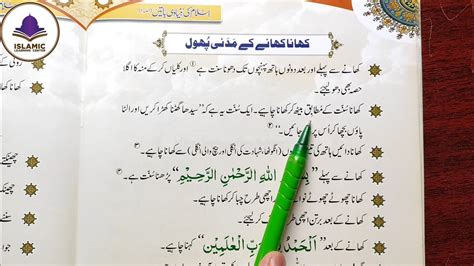 ISLAMIC
LEARNING CENTER
اسلام کی بنیادی باتیں
کھانا کھانے کے مَدَنی پُھول
کھانے سے پہلے اور بعد دونوں ہاتھ پہنچوں تک دھونا سنت ہے ① اور کلیاں کر کے منہ کا اگلا
حصہ بھی دھو لیجئے۔
کھانا سنت کے مطابق بیٹھ کر کھانا چاہیے۔ ایک سنت یہ ہے کہ "سیدھا گھٹنا کھڑا کریں اور الٹا
پاؤں بچھا کر اُس پر جائیں۔" ②
کھانا دائیں ہاتھ کی (انگوٹھا، شہادت کی انگلی اور بیچ والی انگلی) سے کھانا چاہیے۔
کھانے سے پہلے "اللّٰهِ الرَّحْمٰنِ الرَّحِيْمِ" پڑھنا سنت ہے۔
کھانا چھوٹے چھوٹے اچھی طرح چبا کر کھانا چاہیے۔
کھانے کے بعد برتن اچھی طرح کر لیجئے۔
کھانے کے بعد "اَلْحَمْدُ رَبِّ الْعٰلَمِيْن" کہنا چاہیے۔